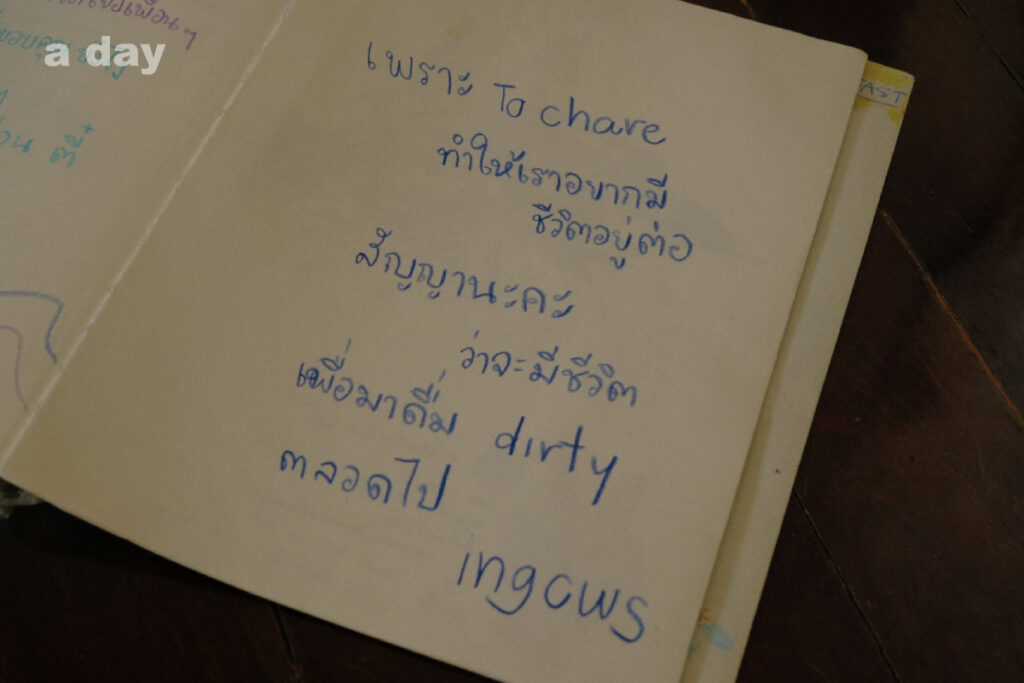 a day
เพราะ To chare
ทำให้เราอยากมี
ชีวิตอยู่ต่อ
สัญญานะคะ
ว่าจะมีชีวิต
เพื่อมาดื่ม dirty
ตลอดไป
ingcws
AST